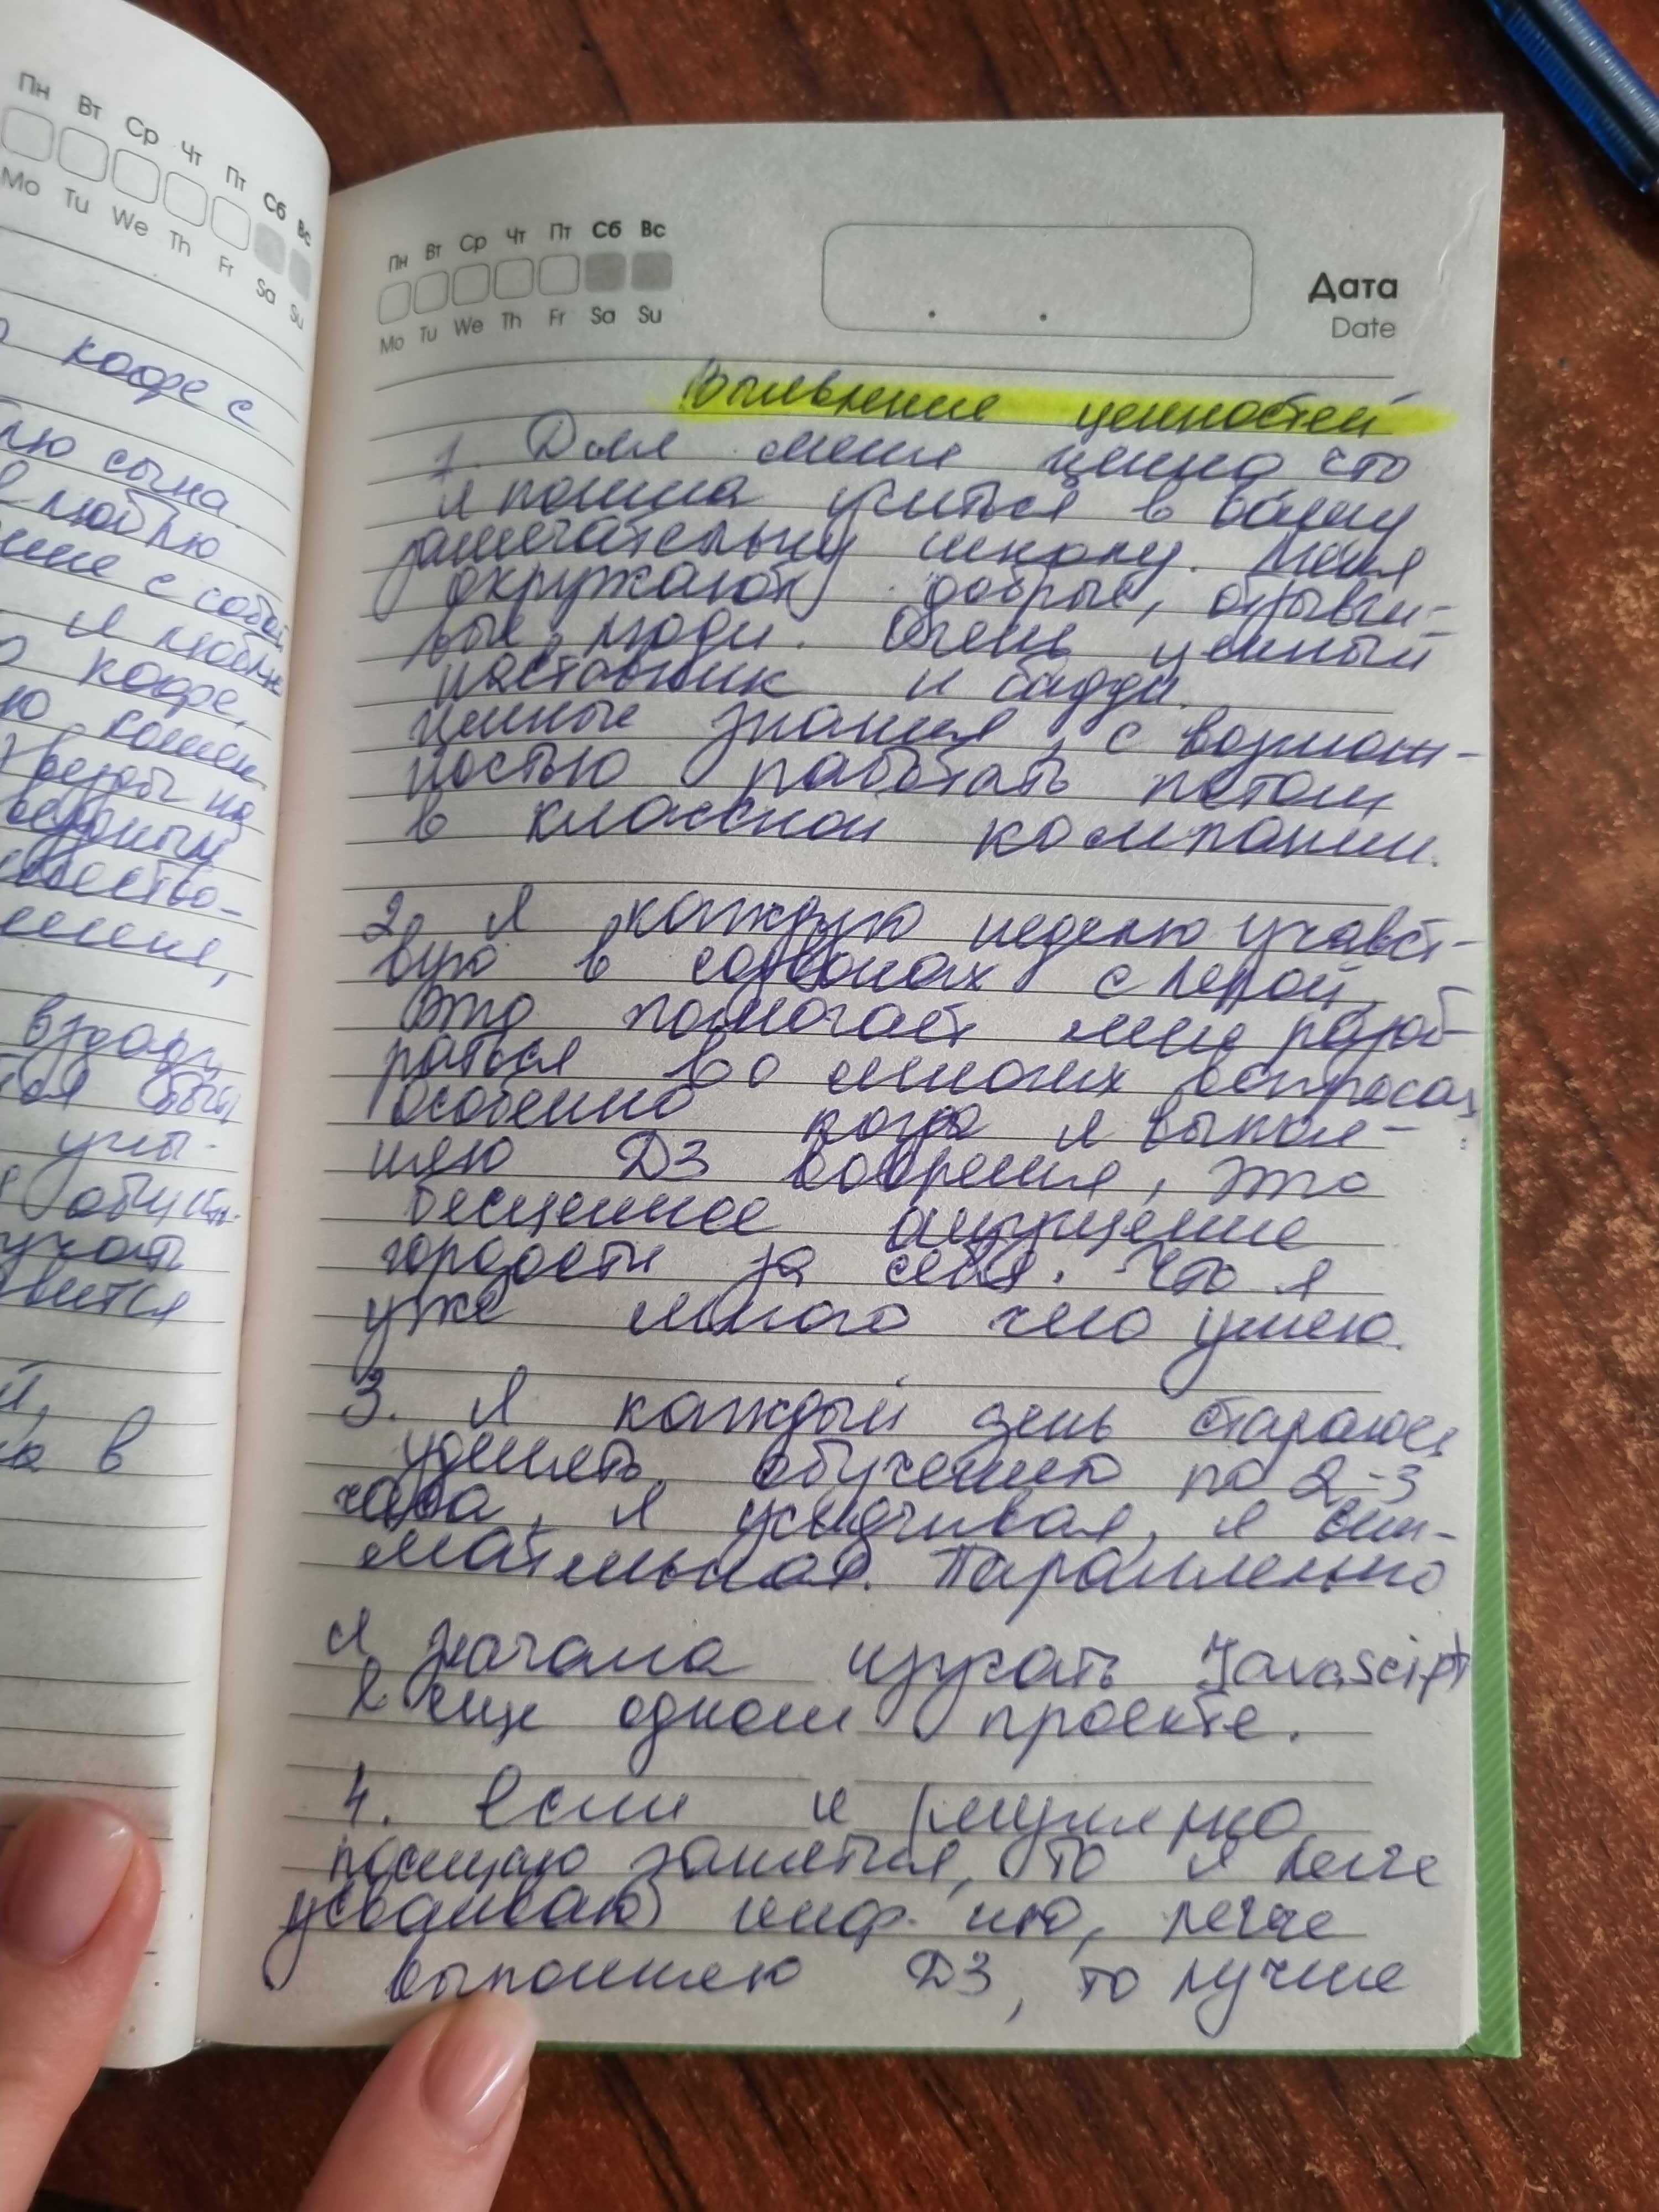 Пн Вт Ср Чт Пт Сб Вс
Mo Tu We Th Fr Sa Su
кофе с
лю сына.
люблю
с собой
я люблю
кофе,
звезды на
учать
вится
а в
Пн Вт Ср Чт Пт Сб Вс
Mo Tu We Th Fr Sa Su
Дата
Date
Выявление ценностей
1. Для меня ценно что
я пошла учиться в вашу
замечательну школу. Меня
окружают добрые, отзывчи-
вые люди. Очень ценный
наставник и бадди.
ценные знания, с возмож-
ностью работать потом
в классной компании.
2. Я каждую неделю учавст-
вую в созвонах с Лерой,
Это помогает мне разоб-
раться во многих вопросах
особенно когда я выпол-
няю ДЗ вовремя, это
бесценное ощущение
гордости за себя. Что я
уже много чего умею.
3. Я каждый день стараюсь
уделять обучению по 2-3
часа, я усидчивая, я вни-
мательная. Параллельно
я начала изучать Javascript
в еще одном проекте.
4. Если я регулярно
посещаю занятия, то я легче
усваиваю инф-ию, легче
выполняю ДЗ, то лучше